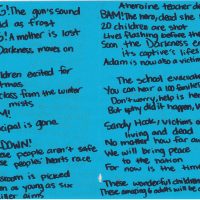 G! The gun's sound
ld as frost
! A mother is lost
Darkness moves on
ldren excited for
tmas
class from the winter
mists
M!
cipal is gone.
DOWN!
e people aren't safe
se peoples' hearts race.
sroom is picked
n as young as six
aims
A heroine teacher
BAM! The hero, dead she
20 children are shot
Lives flashing before th
Soon, the Darkness
its captive's life
Adam is now also a victim
The school evacuate
You can hear a 100 families
Don't worry, help is he
But why did it happen,
Sandy Hook, victims
living and dead
No matter how far
We will bring peace
to the nation
For now is the time
These wonderful children
These amazing 6 adults will be